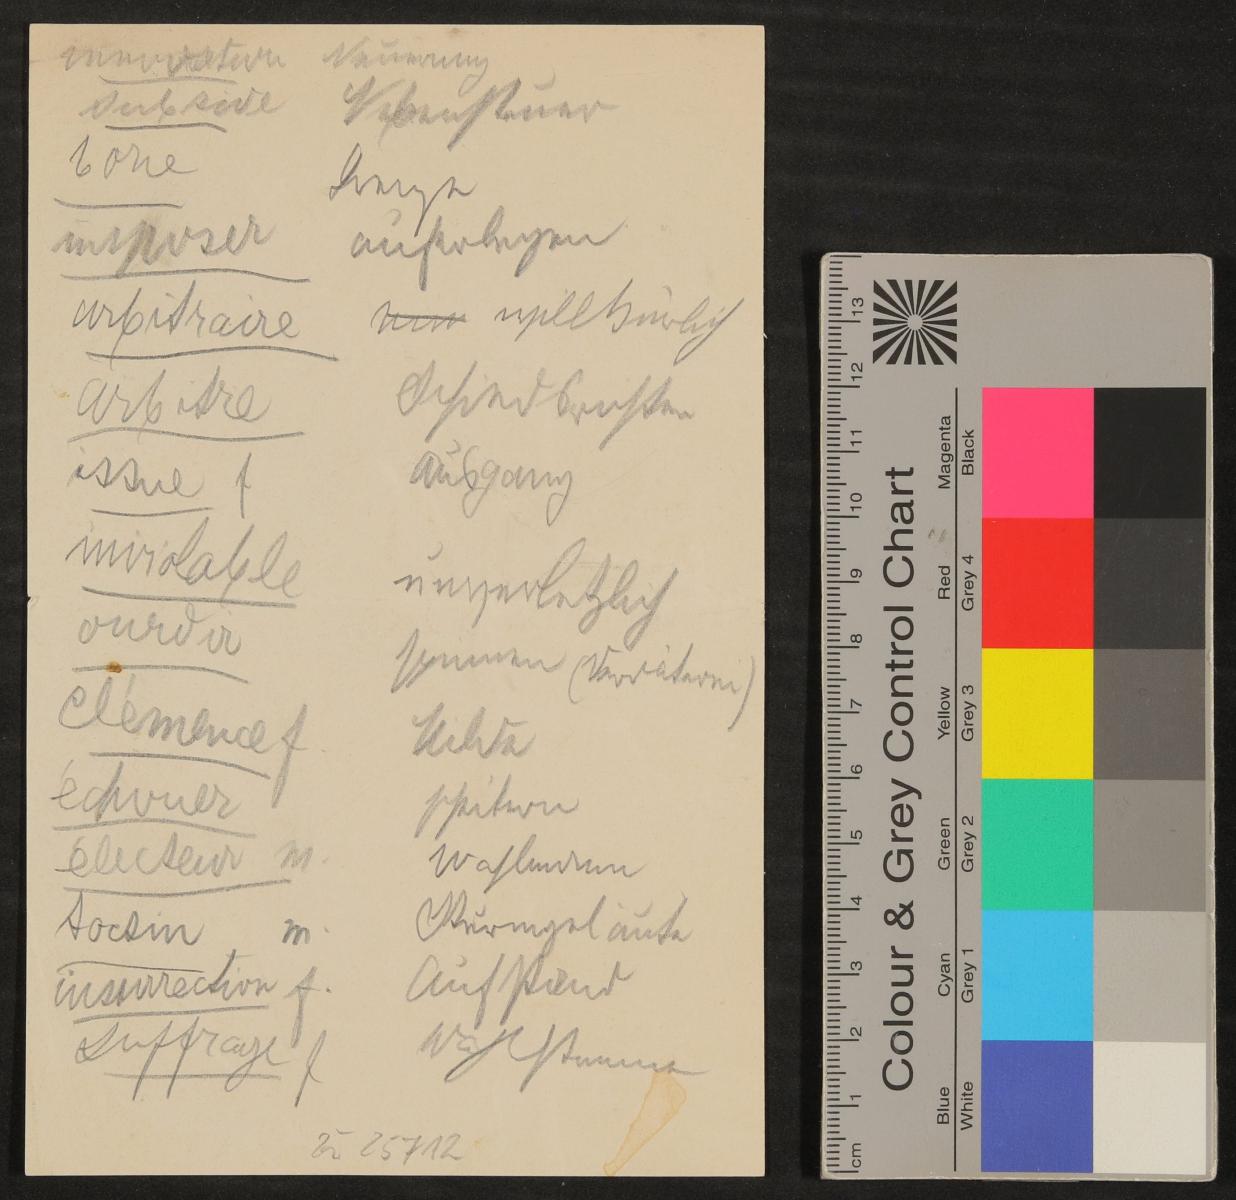 innovation Neuerung
subside Nebensteuer
borne Grenze
imposer auferlegen
arbitraire willkürlich
arbitre Schiedsrichter
issue f Ausgang
inviolable unverletzlich
ourdir spinnen (Verräterei)
clémence f Milde
échouer scheitern
électeur m. Wahlmann
tocsin m. Sturmgeläute
insurrection f. Aufstand
suffrage f Wahlstimme
zu 25712
Colour & Grey Control Chart
Blue Cyan Green Yellow Red Magenta
White Grey 1 Grey 2 Grey 3 Grey 4 Black
cm 1 2 3 4 5 6 7 8 9 10 11 12 13